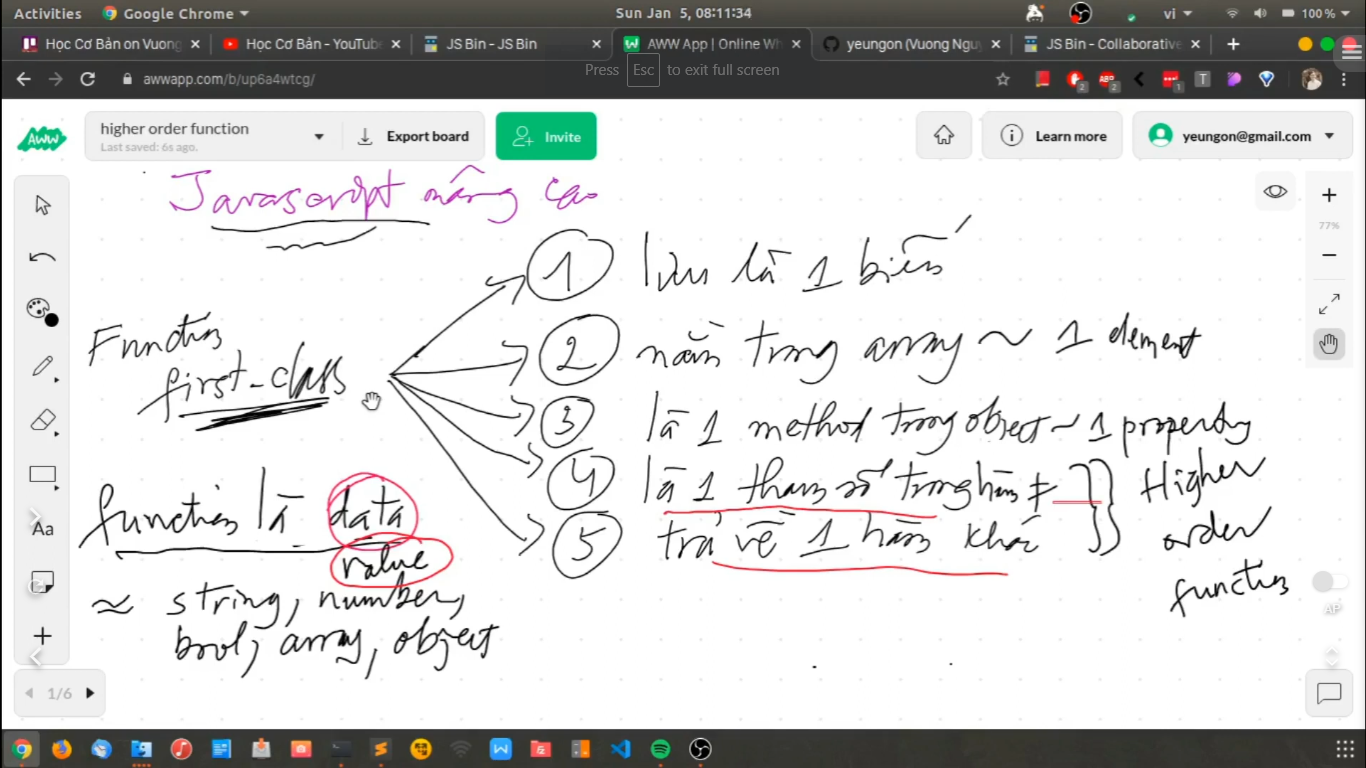 Activities
Google Chrome
Sun Jan 5, 08:11:34
vi
100 %
Học Cơ Bản on Vuong
Học Cơ Bản - YouTube
JS Bin - JS Bin
AWW App | Online Wh
yeungon (Vuong Ngu
JS Bin - Collaborative
Press Esc to exit full screen
awwapp.com/b/up6a4wtcg/
higher order function
Last saved: 6s ago.
Export board
Invite
Learn more
yeungon@gmail.com
77%
Javascript nâng cao
Function
first-class
1 lưu là 1 biến
2 nằm trong array ~ 1 element
3 là 1 method trong object ~ 1 property
4 là 1 tham số trong hàm ≠
5 trả về 1 hàm khác
Higher
order
function
function là data
value
≈ string, number,
bool, array, object
Aa
AP
1/6